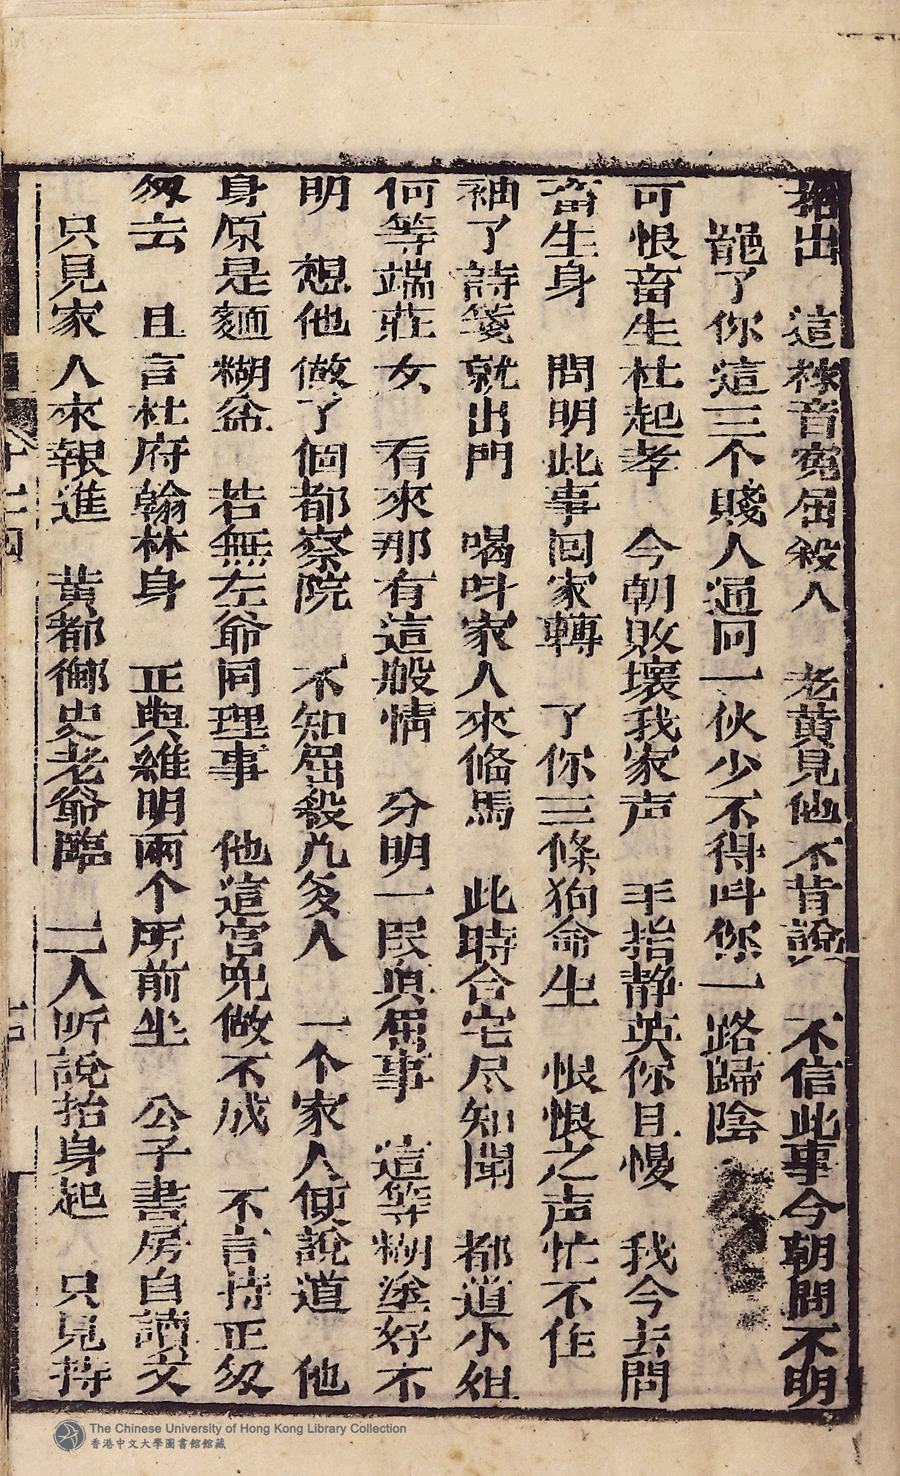 招出　這樣音寃屈殺人　老黄見他不肯說　不信此事今朝問不明
罷了你這三个賤人通同一伙少不得呌你一路歸陰
可恨畜生杜起孝　今朝敗壞我家声　手指静英你且慢　我今去問
畜生身　問明此事囘家轉　了你三條狗命生　恨恨之声忙不住
袖了詩箋就出門　喝呌家人來俻馬　此時合宅尽知聞　都道小姐
何等端莊女　看來那有這般情　分明一民真屈事　這等糊塗好不
明　想他做了個都察院　不知屈殺凢多人　一个家人便說道　他
身原是麵糊盆　若無左爺同理事　他這官児做不成　不言持正匆
匆去　且言杜府翰林身　正與維明兩个所前坐　公子書房自讀文
只見家人來報進　黄都御史老爺臨　二人听說抬身起　只見持
The Chinese University of Hong Kong Library Collection
香港中文大學圖書館館藏